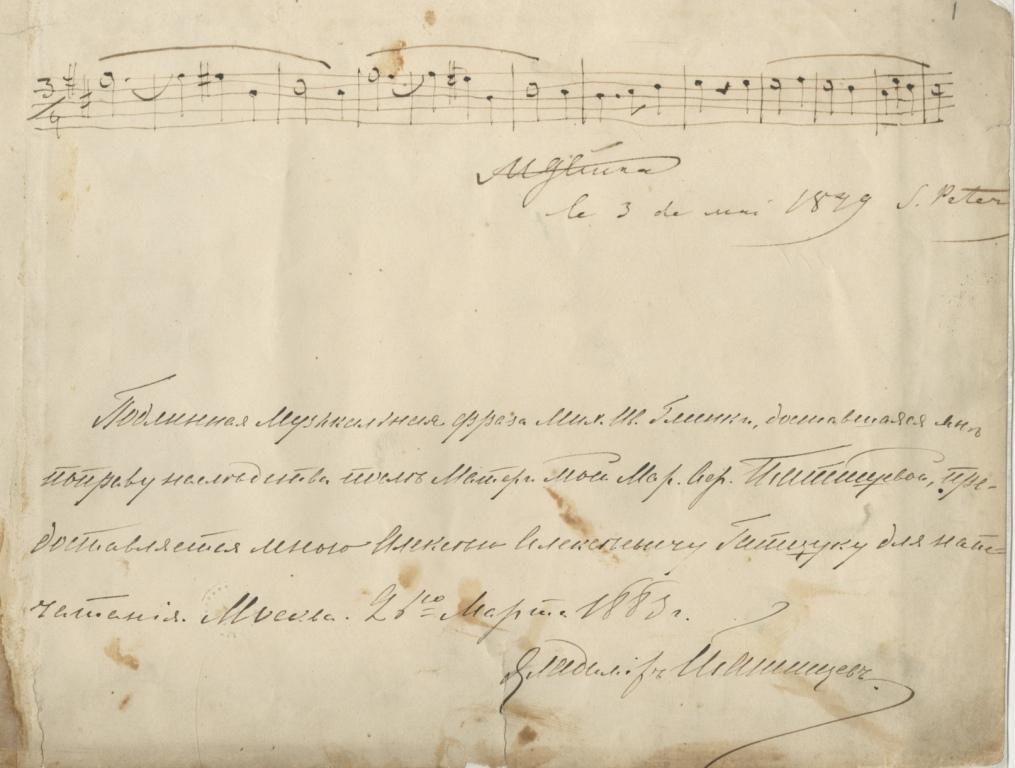 1
MGlinka
le 3 de mai 1849 S. Peter
Подлинная Музыкальная фраза Мих. Ив. Глинки, доставшаяся мнѣ
по праву наслѣдства послѣ Матери Моей Мар. Сер. пре-
доставляется мною Алексѣю Алексѣевичу Гатцуку для напе-
чатанія. Москва. Марта 1883 г.
Владиміръ